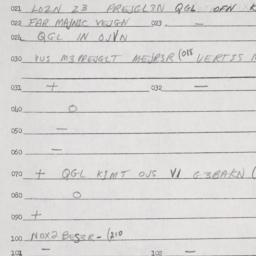 021 LOZN Z3 PREJGLZN QGL OFN K
022 FAR MAJNIC VEJGN 023 —
024 QGL IN OJVN
030 VUS M3PREJGLT MEJRSR (015 VERTIS
031 + 032 —
040 O
050 —
060 —
070 + QGL KIMT OJS VI G3BARN (
080 O
090 +
100 NOX2 BESER - (210
101 — 102 —